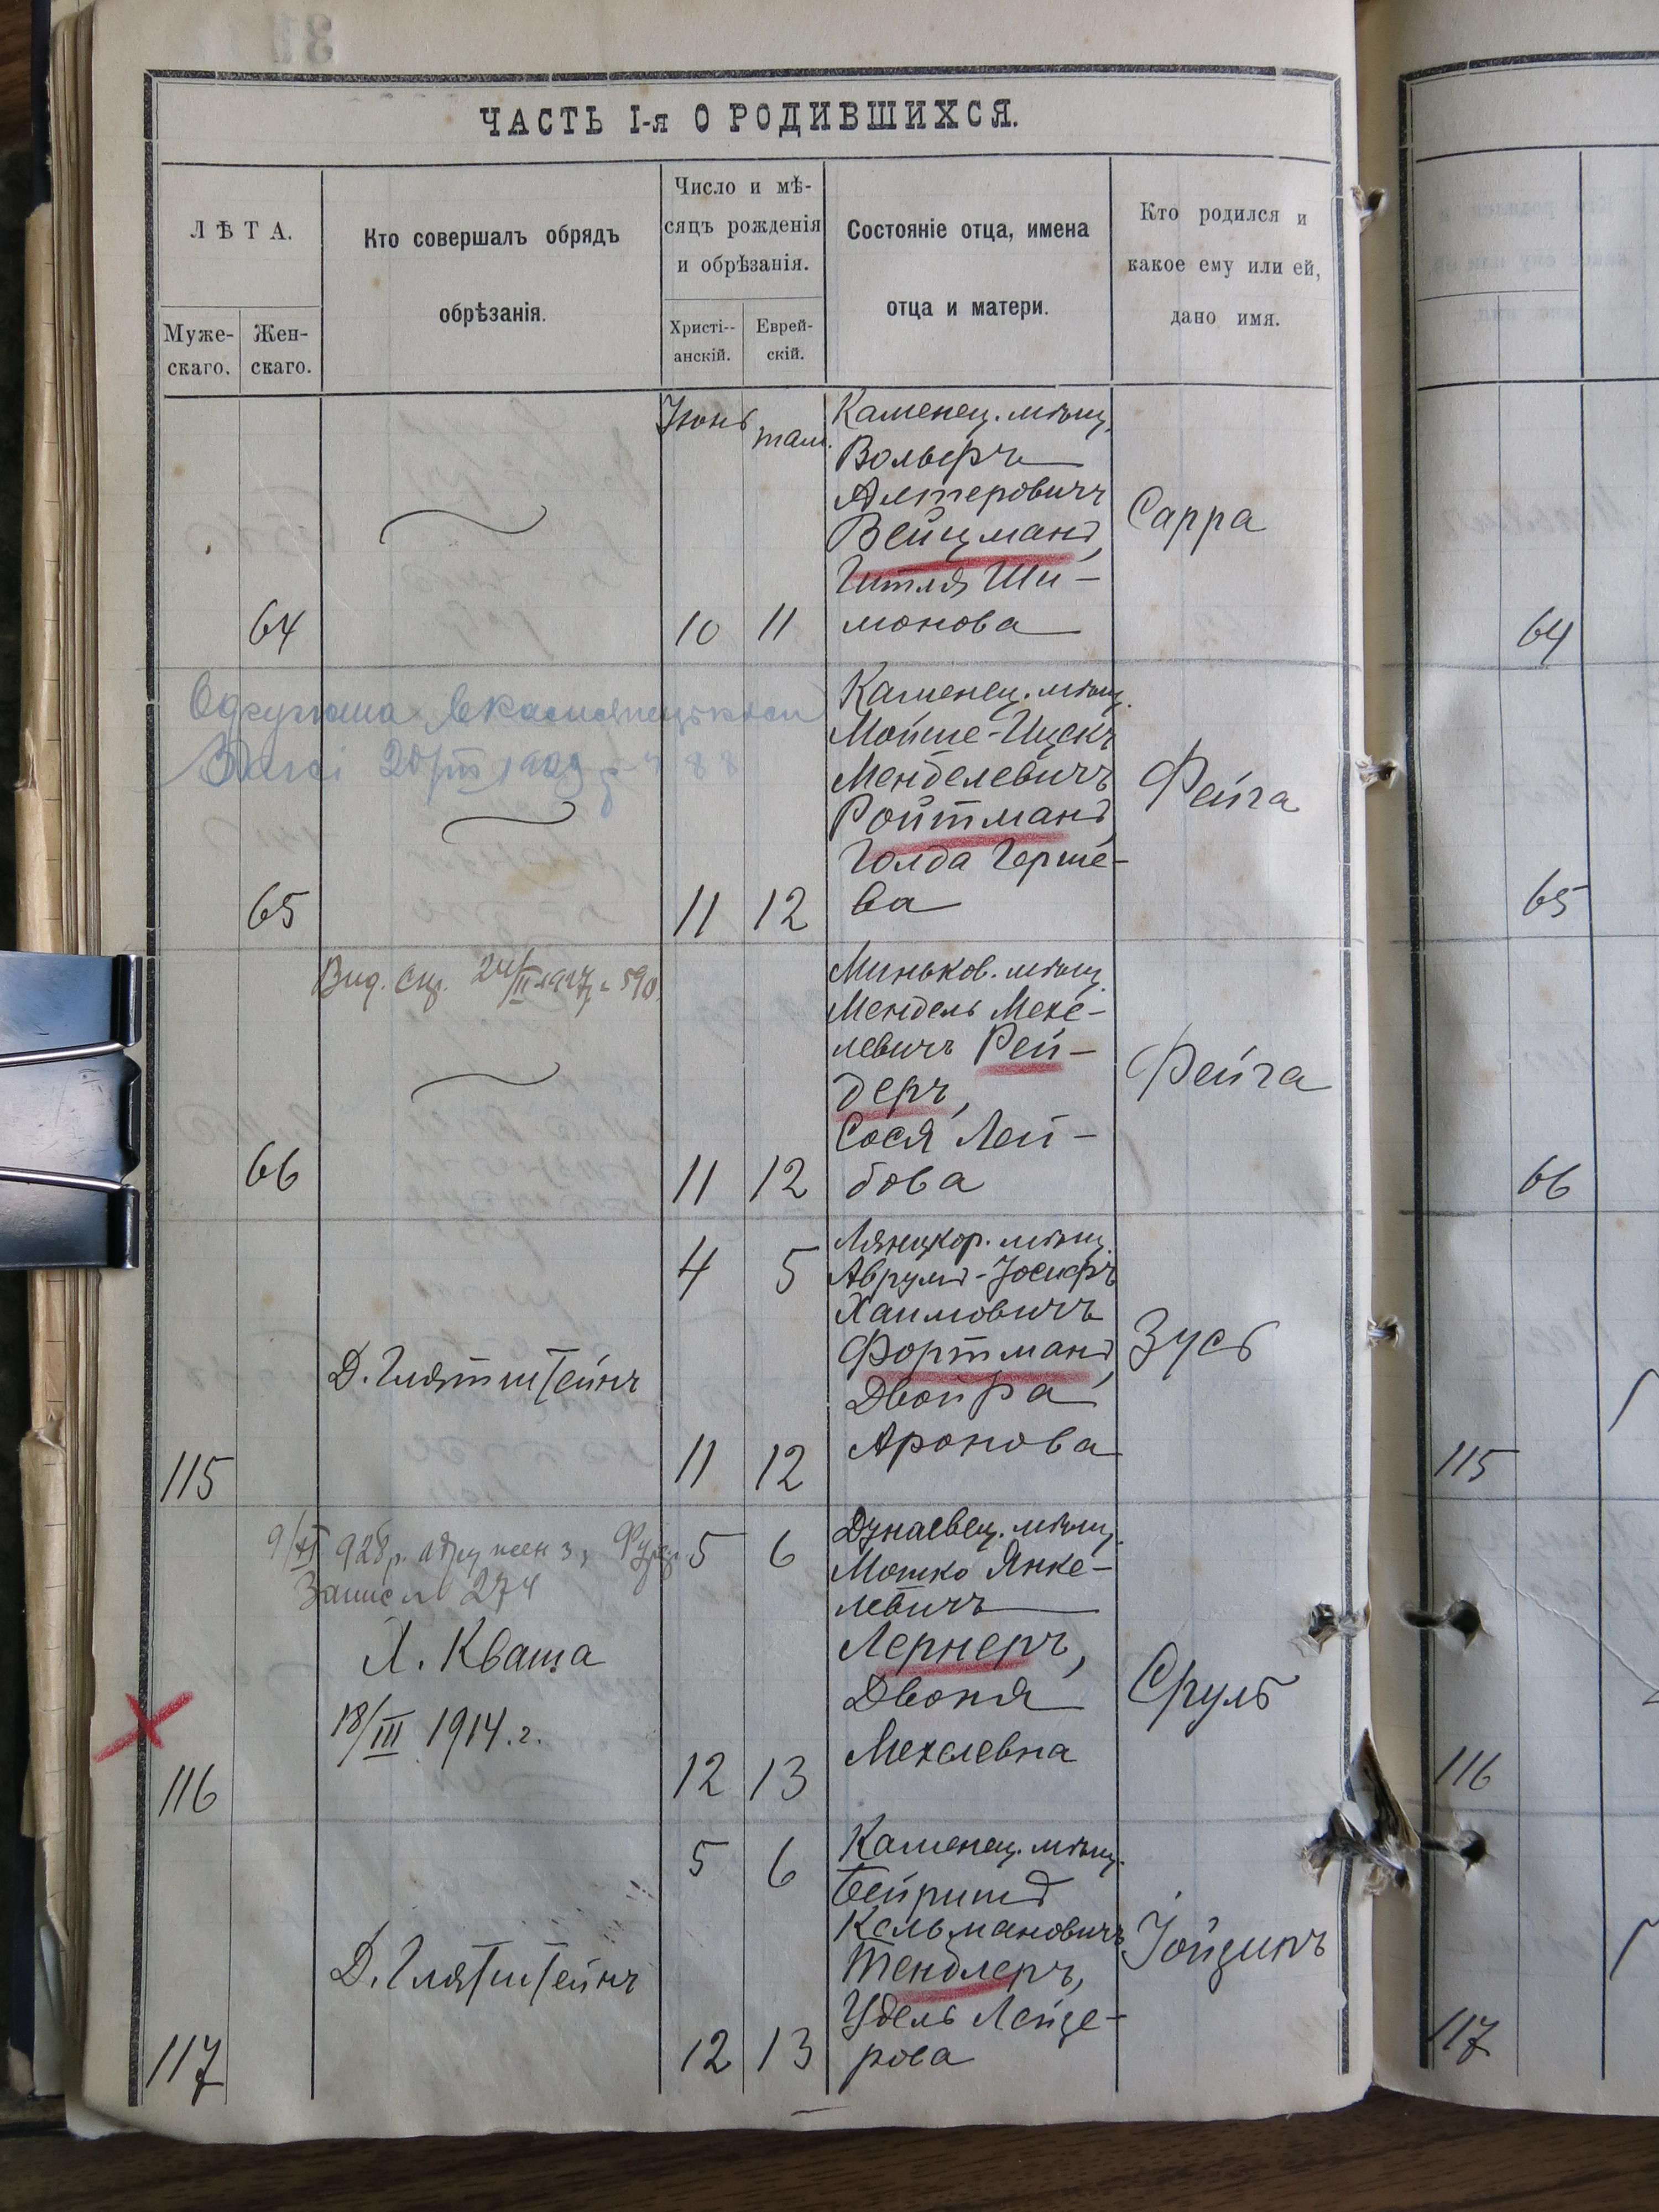 ЧАСТЬ I-я О РОДИВШИХСЯ.
ЛѢТА.
Муже-
скаго.
Жен-
скаго.
Кто совершалъ обрядъ
обрѣзанія.
Число и мѣ-
сяцъ рожденія
и обрѣзанія.
Христі--
анскій.
Еврей-
скій.
Состояніе отца, имена
отца и матери.
Кто родился и
какое ему или ей,
дано имя.
64
Іюнь
там.
10
11
Каменец. мѣщ.
Вольфъ
Алтеровичъ
Вейцманъ,
Гитля Ши-
монова
Сарра
64
65
20/III 1929 р
11
12
Каменец. мѣщ.
Мойше-Ицекъ
Менделевичъ
Ройтманъ,
Голда Герше-
ва
Фейга
65
66
Вид. 24/II 1927 590
11
12
Миньков. мѣщ.
Мендель Мехе-
левичъ Рей-
деръ,
Сося Лей-
бова
Фейга
66
115
Д. Глятштейнъ
4
5
11
12
Лянцкор. мѣщ.
Аврумъ-Іосифъ
Хаимовичъ
Фортманъ,
Двойра
Аронова
Зусь
115
9/XI 928 р. одружен з
Запис 274
116
Х. Кваша
18/III 1914. г.
5
6
12
13
Дунаевец. мѣщ.
Мошко Янке-
левичъ
Лернеръ,
Двоня
Мехелевна
Сруль
116
117
Д. Глятштейнъ
5
6
12
13
Каменец. мѣщ.
Бейришъ
Кельмановичъ
Тендлеръ,
Удель Лейзе-
рова
Іойликъ
117